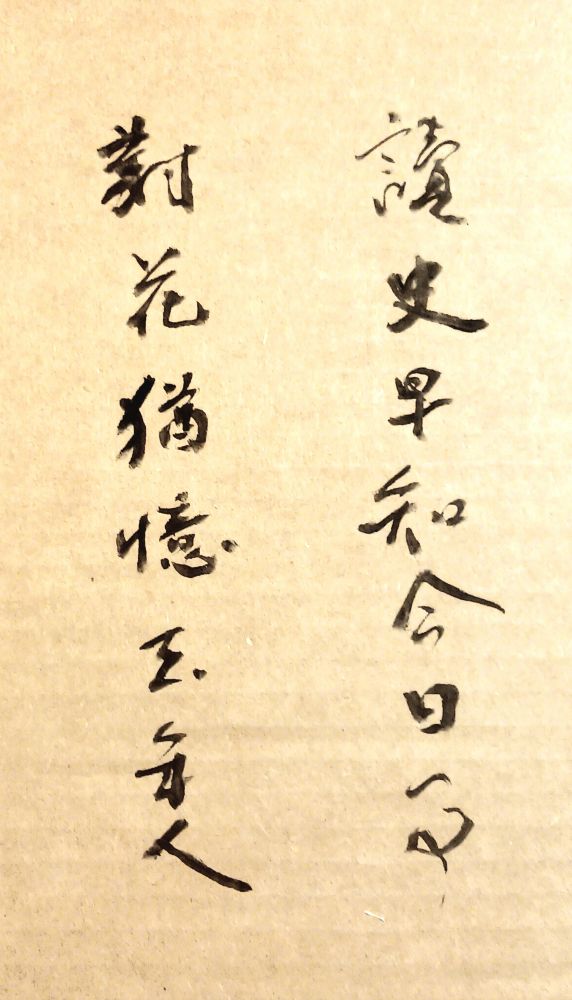 讀史早知今日事
對花猶憶去年人